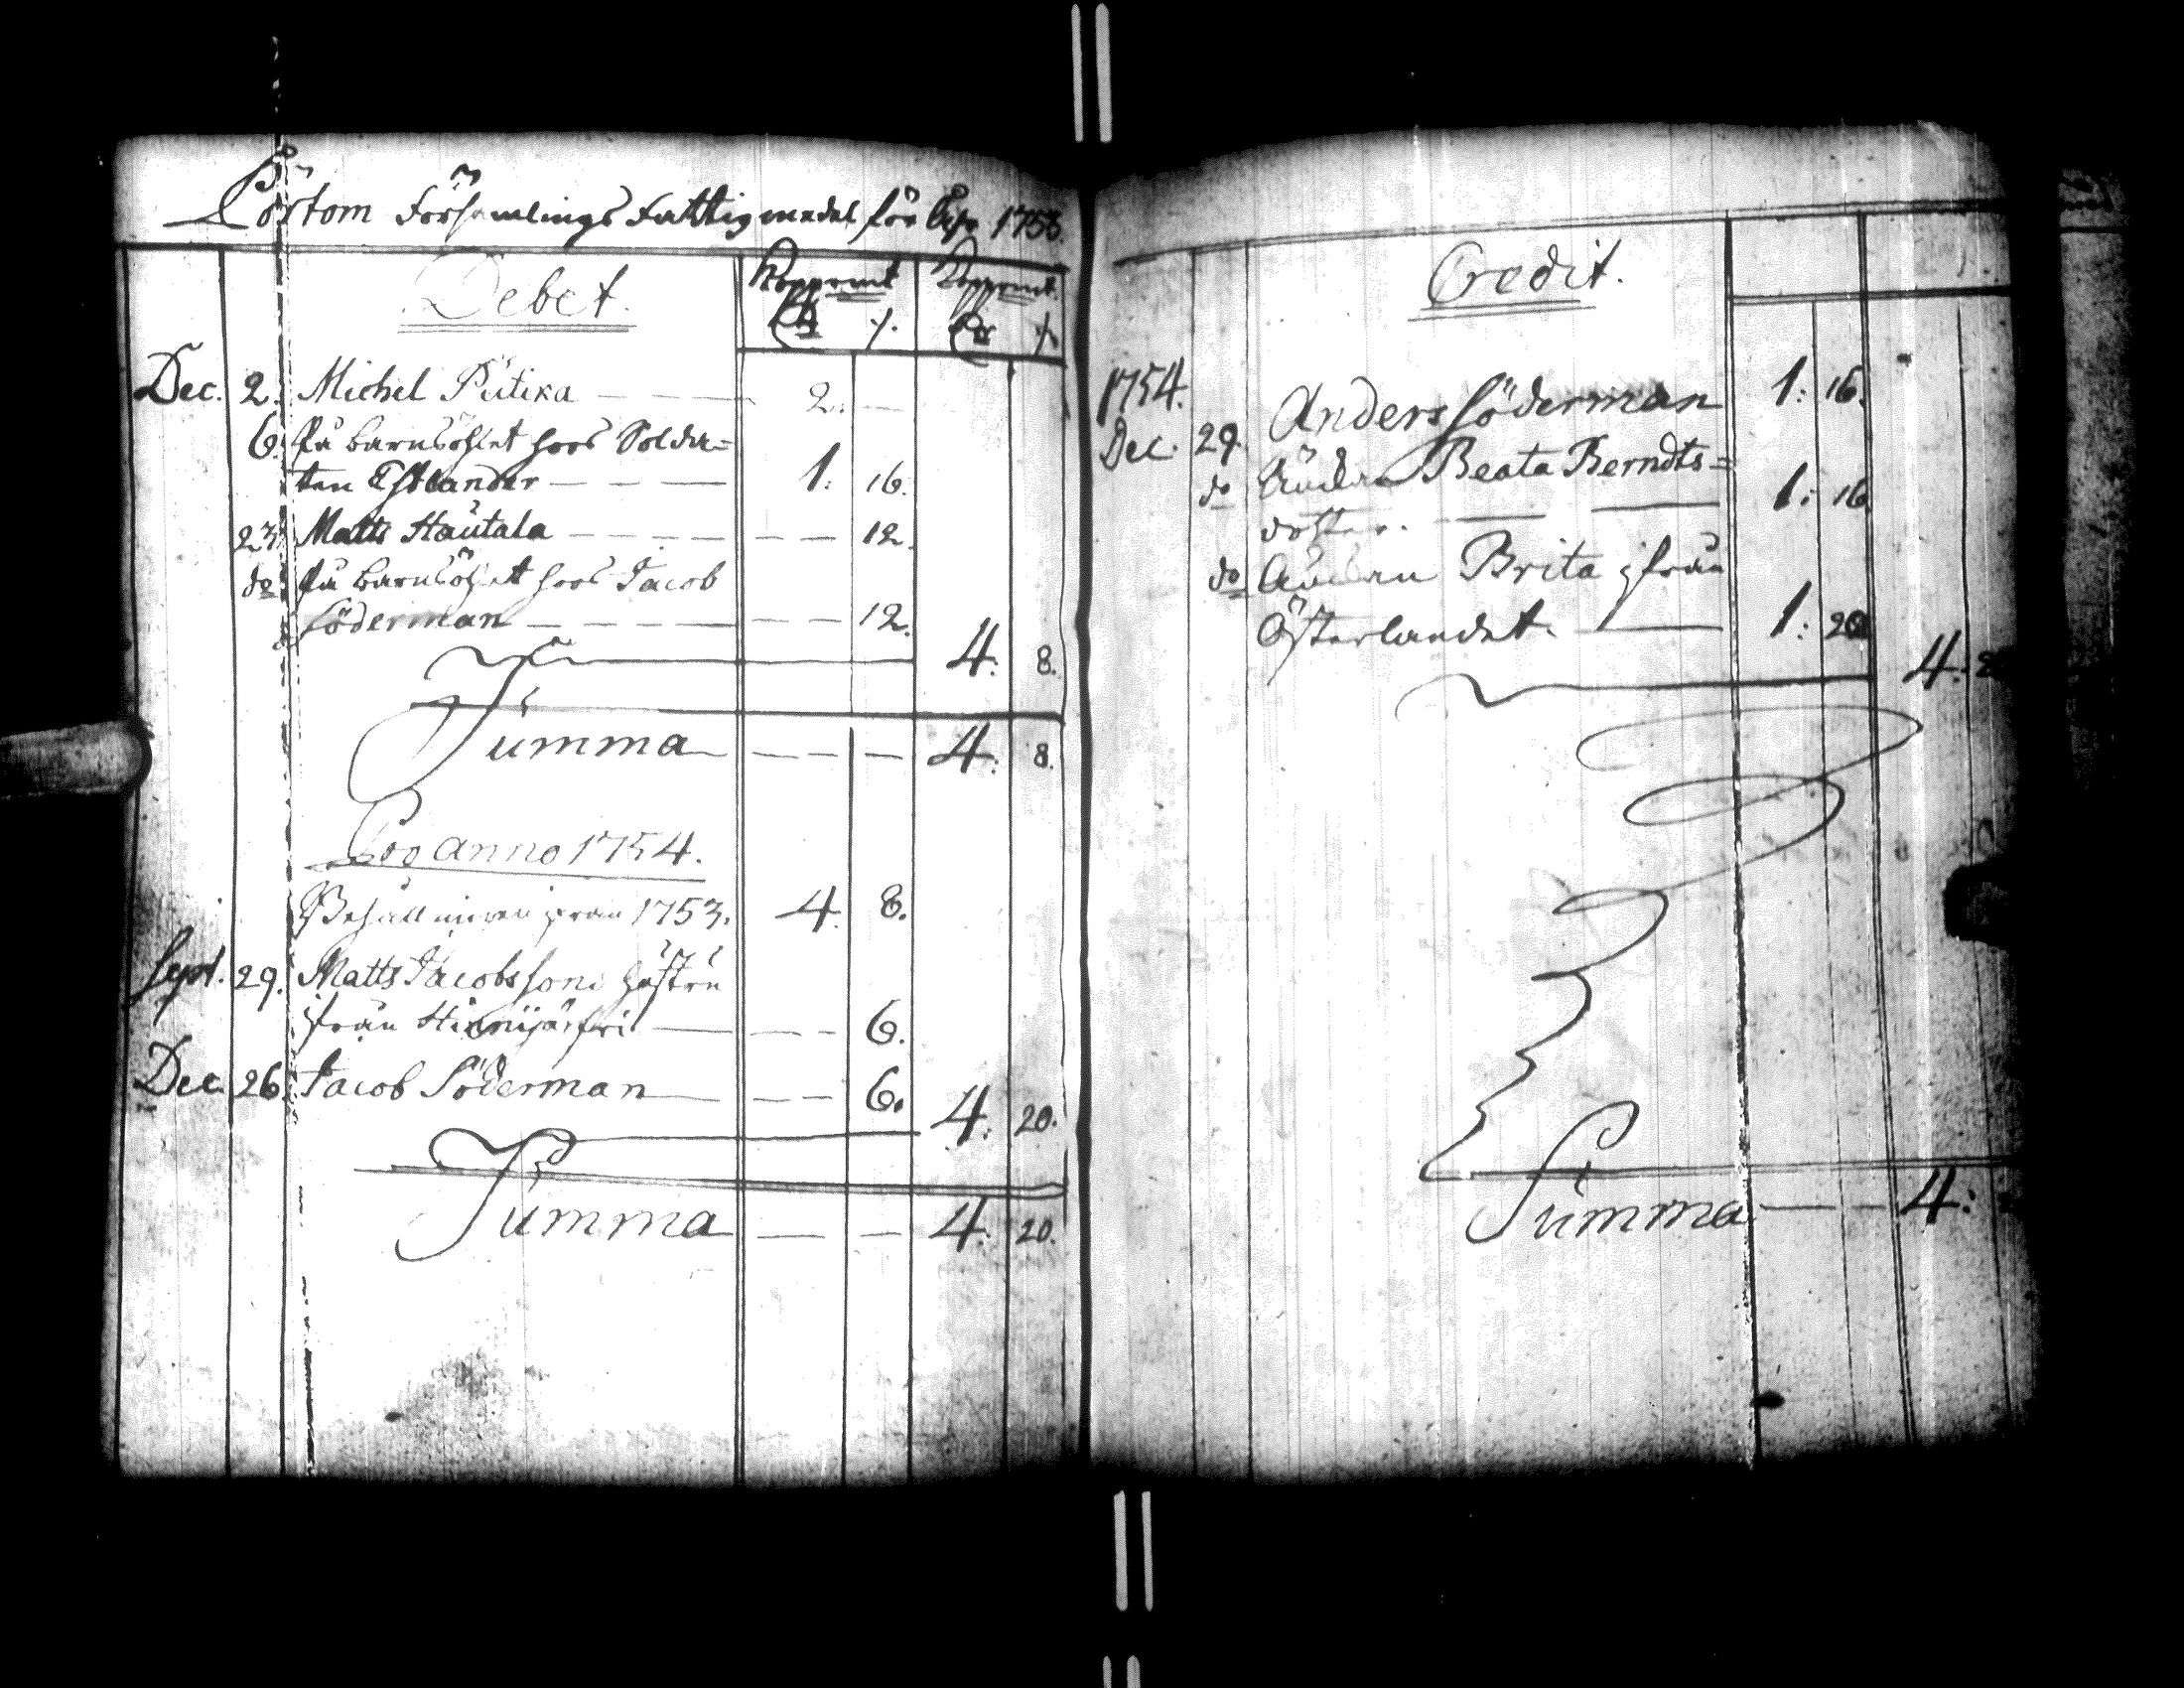 Pörtom Församlings Fattigmedel för Åhr 1753.
Debet.
Kopp.mt Kopp.mt
Dec. 2. Michel Pütika — — 2. —
6. På barnsöhlet hoos Solda=
ten Estlander — — — 1. 16.
23. Matts Hautala — — — — — 12.
do På barnsöhlet hoos Jacob
Söderman — — — — — 12.
4. 8.
Summa — — — 4. 8.
Pro Anno 1754.
Behållningen från 1753. 4. 8.
Sept. 29. Matts Jacobssons hustru
från — — — 6.
Dec. 26. Jacob Söderman — — — 6.
4. 20.
Summa — — 4. 20.
Credit.
1754.
Dec. 29. Anders Söderman 1: 16.
do Änkan Beata Berndts=
dotter. — — 1: 16
do Änkan Brita ifrån
Österlandet. — 1: 20
4:
Summa — — 4: